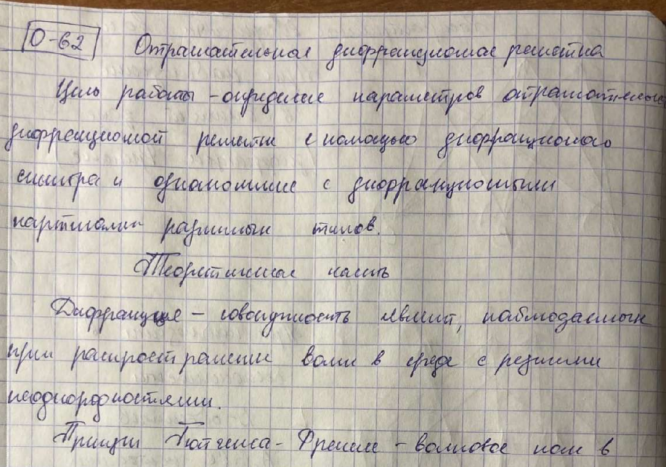 О-62 Отражательная дифракционная решетка
Цель работы - определение параметров отражательной
дифракционной решетки с помощью дифракционного
спектра и ознакомление с дифракционными
картинами различных типов.
Теоретическая часть
Дифракция - совокупность явлений, наблюдаемых
при распространении волн в среде с резкими
неоднородностями.
Принцип Гюйгенса - Френеля - волновое поле в